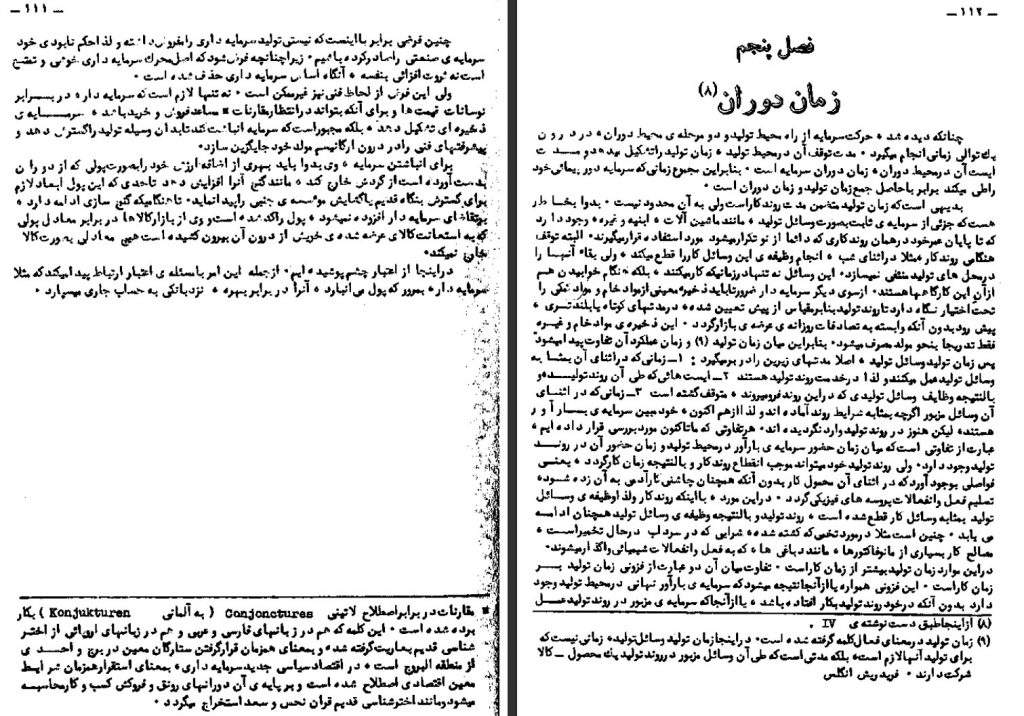 ـ ۱۱۱ ـ
چنین فرضی برابر با اینست که نیستی تولید سرمایه داری را مفروض داشته و لذا حکم نابودی خود
سرمایه ی صنعتی را صادر کرده باشیم ۰ زیرا چنانچه فرض شود که اصل محرک سرمایه داری خوشی و تمتع
است نه ثروت افزائی بنفسه ۰ آنگاه اساس سرمایه داری حذف شده است ۰
ولی این فرض از لحاظ فنی نیز غیرممکن است ۰ نه تنها لازم است که سرمایه دار ۰ در برابر
نوسانات قیمت ها و برای آنکه بتواند در انتظار مقارنات * مساعد فروش و خرید باشد ۰ سرمایه ی
ذخیره ای تشکیل دهد ۰ بلکه مجبور است که سرمایه انباشت کند تا بدان وسیله تولید را گسترش دهد و
پیشرفتهای فنی را در درون ارگانیسم مولد خود جایگزین سازد۰
برای انباشتن سرمایه ۰ وی بدوا باید بهری از اضافه ارزش خود را بصورت پولی که از دوران
بدست آورده است از گردش خارج کند ۰ مانند گنج آنرا افزایش دهد تا حدی که این پول ابعاد لازم
برای گسترش بنگاه قدیم یا گشایش موسسه ی جنبی را پیدا نماید۰ تا هنگامیکه گنج سازی ادامه دارد ۰
بر تقاضای سرمایه دار افزوده نمیشود ۰ پول راکد شده است و وی از بازار کالاها در برابر معادل پولی
که به استعانت کالای عرضه شده ی خویش از درون آن بیرون کشیده است هیچ معادلی بصورت کالا
خارج نمیکند۰
در اینجا از اعتبار چشم پوشیده ایم ۰ از جمله این امر با مسئله ی اعتبار ارتباط پیدا میکند که مثلا
سرمایه دار ۰ بمرور که پول می انبارد ۰ آنرا در برابر بهره ۰ نزد بانکی به حساب جاری میسپارد ۰
* مقارنات در برابر اصطلاح لاتینی Conjonctures ( به آلمانی Konjukturen ) بکار
برده شده است ۰ این کلمه که هم در زبانهای فارسی و عربی و هم در زبانهای اروپائی از اختر
شناسی قدیم بعاریت گرفته شده ۰ و بمعنای همزمان قرار گرفتن ستارگان معین در برج واحدی
از منطقه البروج است ۰ در اقتصاد سیاسی جدید سرمایه داری ۰ بمعنای استقرار همزمان شرایط
معین اقتصادی اصطلاح شده است و بر پایه ی آن دورانهای رونق و فروکش کسب و کار محاسبه
میشود و مانند اخترشناسی قدیم قران نحس و سعد استخراج میگردد ۰
ـ ۱۱۲ ـ
فصل پنجم
زمان دوران (۸)
چنانکه دیده شد ۰ حرکت سرمایه از راه محیط تولید و دو مرحله ی محیط دوران ۰ در درون
یک توالی زمانی انجام میگیرد ۰ مدت توقف آن در محیط تولید ۰ زمان تولید را تشکیل میدهد و مدت
ایست آن در محیط دوران ۰ زمان دوران سرمایه است ۰ بنابراین مجموع زمانی که سرمایه دور پیمائی خود
را طی میکند برابر با حاصل جمع زمان تولید و زمان دوران است ۰
بدیهی است که زمان تولید متضمن مدت روند کار است ولی به آن محدود نیست ۰ بدوا بخاطر
هست که جزئی از سرمایه ی ثابت بصورت وسائل تولید ۰ مانند ماشین آلات ۰ ابنیه و غیره ۰ وجود دارد
که تا پایان عمر خود در همان روند کاری که دائما از نو تکرار میشود مورد استفاده قرار میگیرند۰ البته توقف
هنگامی روند کار ۰ مثلا در اثنای شب ۰ انجام وظیفه ی این وسائل کار را قطع میکند ۰ ولی بقاء آنها را
در محل های تولید منتفی نمیسازد۰ این وسائل نه تنها در زمانیکه کار میکنند ۰ بلکه هنگام خوابیدن هم
از آن این کارگاهها هستند۰ از سوی دیگر سرمایه دار ضرورتا باید ذخیره معینی از مواد خام و مواد کمکی را
تحت اختیار نگاه دارد تا روند تولید بنابر مقیاس از پیش تعیین شده ۰ در مدتهای کوتاه یا بلند تری ۰
پیش رود بدون آنکه وابسته به تصادفات روزانه ی عرضه ی بازار گردد ۰ این ذخیره ی مواد خام و غیره
فقط تدریجا بنحو مولد مصرف میشود۰ بنابراین میان زمان تولید (۹) و زمان عملکرد آن تفاوت پیدا میشود۰
پس زمان تولید وسائل تولید ۰ اصلا مدتهای زیرین را در بر میگیرد : ۱ــ زمانی که در اثنای آن بمثابه
وسائل تولید عمل میکنند و لذا در خدمت روند تولید هستند ۲ــ ایست هائی که طی آن روند تولید و
بالنتیجه وظایف وسائل تولیدی که در این روند فرومیروند ۰ متوقف گشته است ۳ــ زمانی که در اثنای
آن وسائل مزبور اگرچه بمثابه شرایط روند آماده اند و لذا از هم اکنون ۰ خود مبین سرمایه ی بارآور
هستند۰ لیکن هنوز در روند تولید وارد نگردیده اند۰ هر تفاوتی که ما تاکنون مورد بررسی قرار داده ایم ۰
عبارت از تفاوتی است که میان زمان حضور سرمایه ی بارآور در محیط تولید و زمان حضور آن در روند
تولید وجود دارد۰ ولی روند تولید خود میتواند موجب انقطاع روند کار و بالنتیجه زمان کار گردد ۰ یعنی
فواصلی بوجود آورد که در اثنای آن محمول کار بدون آنکه همچنان چاشنی کار آدمی به آن زده شود۰
تسلیم فعل و انفعالات پروسه های فیزیکی گردد ۰ در این مورد ۰ با اینکه روند کار و لذا وظیفه ی وسائل
تولید بمثابه وسائل کار قطع شده است ۰ روند تولید و بالنتیجه وظیفه ی وسائل تولید همچنان ادامه
می یابد ۰ چنین است مثلا در مورد تخمی که کشته شده ۰ شرابی که در سرداب در حال تخمیر است ۰
مصالح کار بسیاری از مانوفاکتورها ۰ مانند دباغی ها ۰ که به فعل و انفعالات شیمیائی واگذار میشوند۰
در این موارد زمان تولید بیشتر از زمان کار است ۰ تفاوت میان آن دو عبارت از فزونی زمان تولید بر
زمان کار است ۰ این فزونی همواره یا از آنجا نتیجه میشود که سرمایه ی بارآور نهانی در محیط تولید وجود
دارد بدون آنکه در خود روند تولید بکار افتاده باشد ۰ یا از آنجا که سرمایه ی مزبور در روند تولید عمل
(۸) از اینجا طبق دست نوشته ی IV ۰
(۹) زمان تولید در معنای فعال کلمه گرفته شده است ۰ در اینجا زمان تولید وسائل تولید۰ زمانی نیست که
برای تولید آنها لازم است ۰ بلکه مدتی است که طی آن وسائل مزبور در روند تولید یک محصول ــ کالا
شرکت دارند ۰ فریدریش انگلس